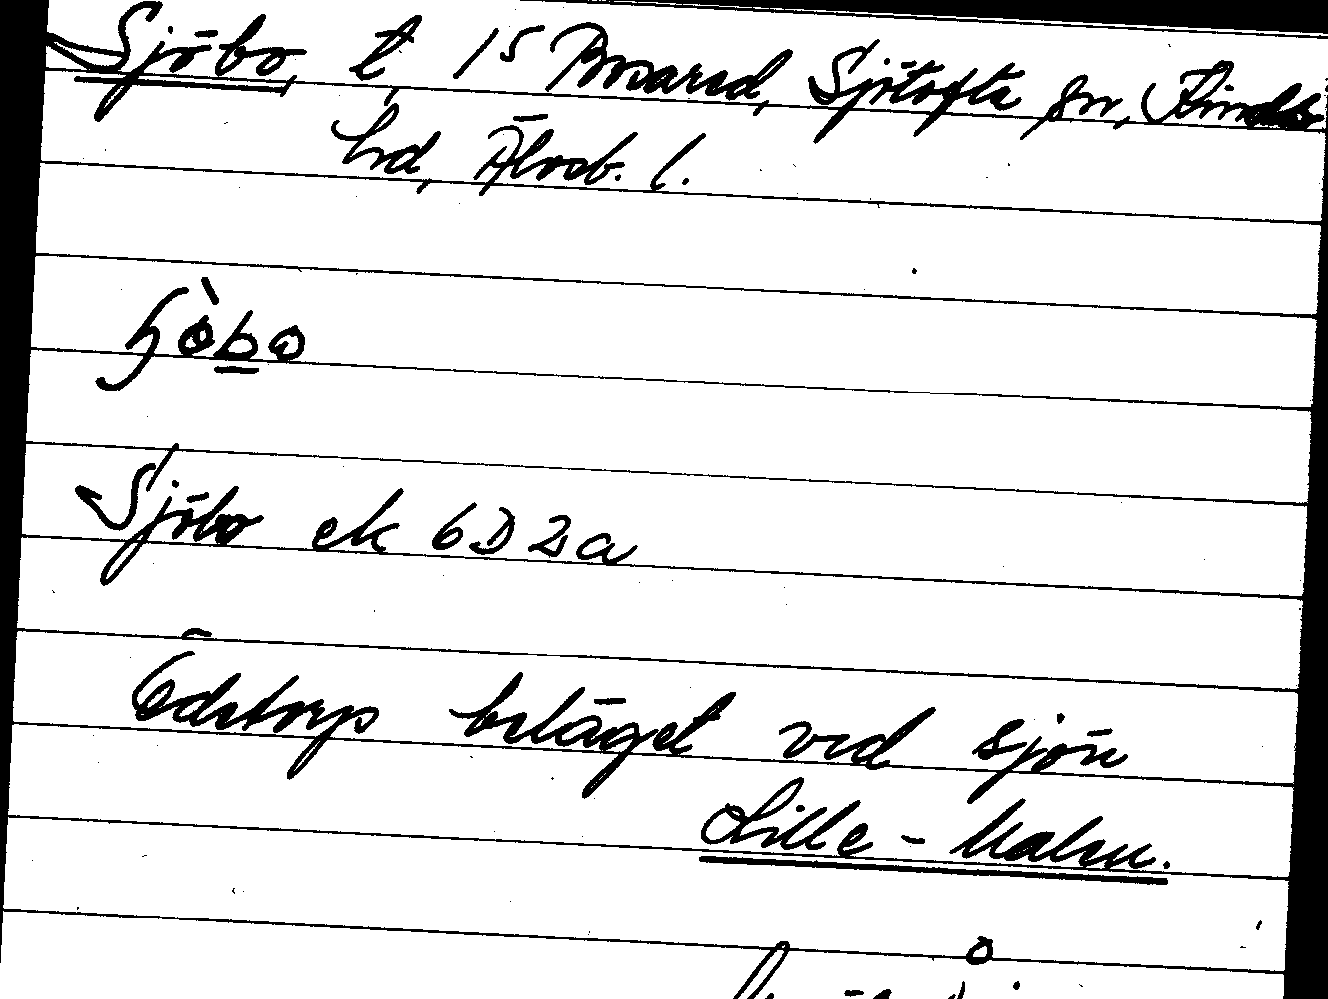 Sjöbo, t, 15 Bosarsd, Sjötofta sn, Kinds
hd, Älvsb. l.
ɧòbo
Sjöbo ek 6D2a
Ödetorp beläget vid sjön
Lille-Malen.